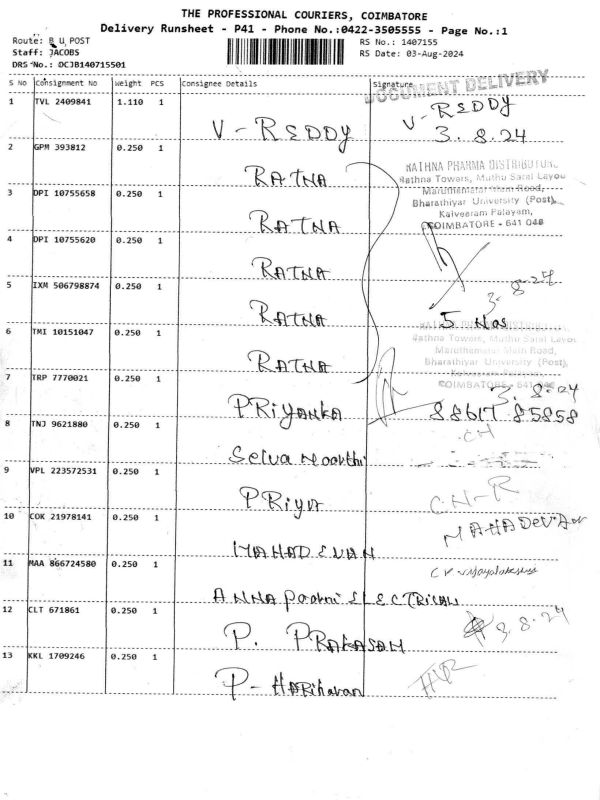 THE PROFESSIONAL COURIERS, COIMBATORE
Delivery Runsheet - P41 - Phone No.:0422-3505555 - Page No.:1
Route: B U POST
RS No.: 1407155
Staff: JACOBS
RS Date: 03-Aug-2024
DRS No.: DCJB140715501
S No Consignment No Weight PCS Consignee Details Signature
DOCUMENT DELIVERY
1 TVL 2409841 1.110 1 V-REDDY V-REDDY
3.8.24
2 GPM 393812 0.250 1 RATNA
RATHNA PHARMA DISTRIBUTORS
Rathna Towers, Muthu Saral Layou
Maruthematar Main Road,
3 DPI 10755658 0.250 1 RATNA
Bharathiyar University (Post),
Kalveeram Palayam,
COIMBATORE - 641 046
4 DPI 10755620 0.250 1 RATNA
5 IXM 506798874 0.250 1 RATNA
3.8.24
5 Nos
6 TMI 10151047 0.250 1 RATNA
Rathna Towers, Muthu Saral Layou
Maruthematar Main Road,
Bharathiyar University (Post),
Kalveeram Palayam,
COIMBATORE - 641 046
7 TRP 7770021 0.250 1 PRiyanka
3.8.24
88617 85858
8 TNJ 9621880 0.250 1 Selva Moorthi
CH
9 VPL 223572531 0.250 1 PRiya
CN-R
10 COK 21978141 0.250 1 MAHADEVAN
MAHADEVAN
11 MAA 866724580 0.250 1 ANNA Poorni ELECTRICAL
12 CLT 671861 0.250 1 P. PRAKASAM
3.8.24
13 KKL 1709246 0.250 1 P-HARiharan